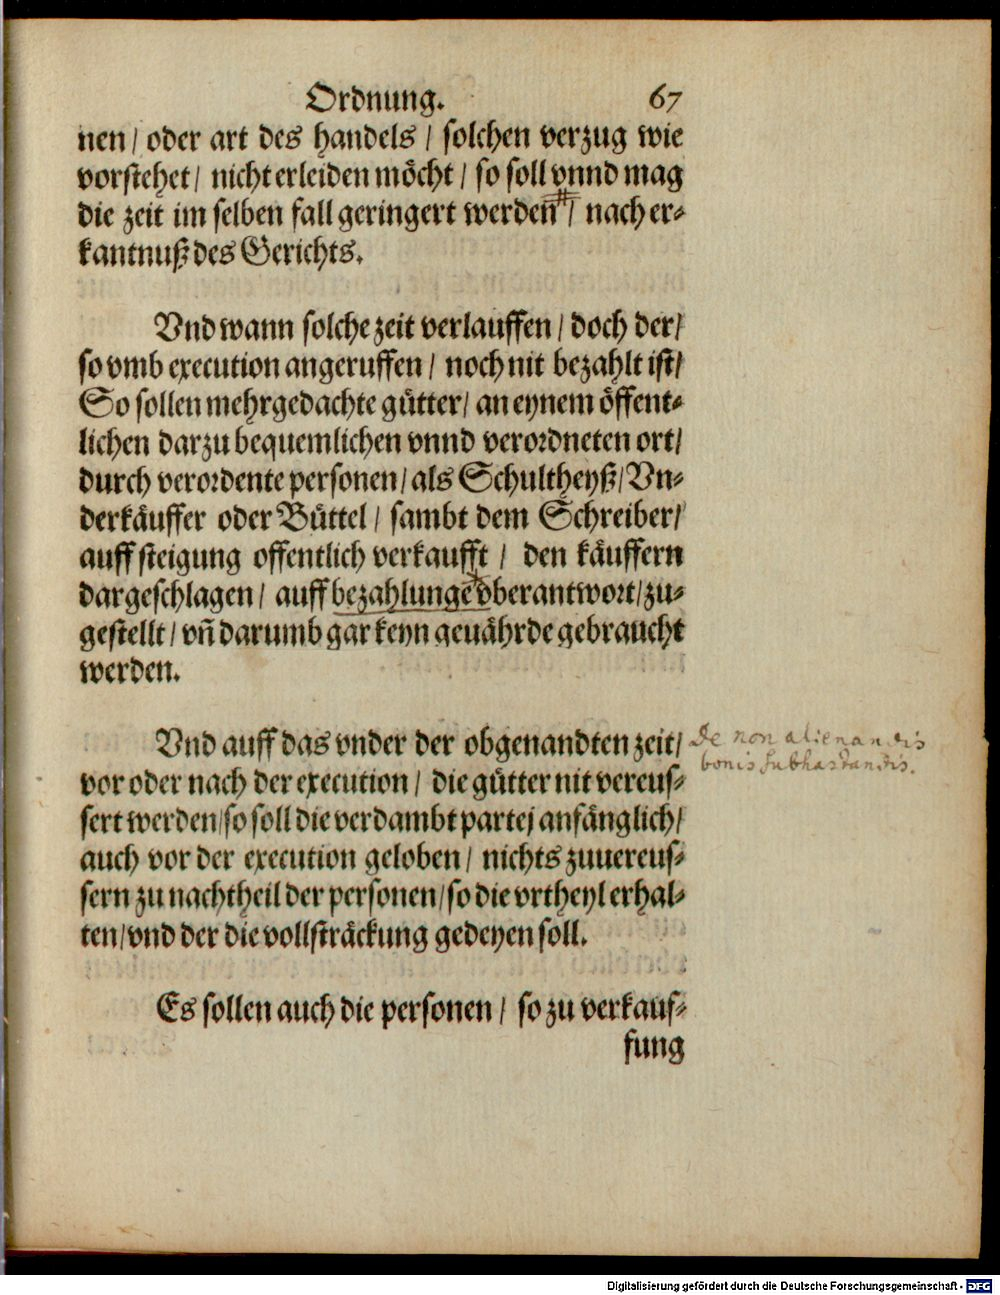 Ordnung. 67
nen/ oder art des handels/ solchen verzug wie
vorstehet/ nicht erleiden möcht/ so soll vnnd mag
die zeit im selben fall geringert werden/ nach er⸗
kantnuß des Gerichts.
Vnd wann solche zeit verlauffen/ doch der/
so vmb execution angeruffen/ noch nit bezahlt ist/
So sollen mehrgedachte gütter/ an eynem öffent⸗
lichen darzu bequemlichen vnnd verordneten ort/
durch verordente personen/ als Schultheyß/ Vn⸗
derkäuffer oder Büttel/ sambt dem Schreiber/
auff steigung offentlich verkaufft/ den käuffern
dargeschlagen/ auff bezahlunge vberantwort/ zu⸗
gestellt/ vñ darumb gar keyn geuährde gebraucht
werden.
Vnd auff das vnder der obgenandten zeit/
De non alienandis
bonis subhastandis.
vor oder nach der execution/ die gütter nit vereus⸗
sert werden/ so soll die verdambt partej anfänglich/
auch vor der execution geloben/ nichts zuuereus⸗
sern zu nachtheil der personen/ so die vrtheyl erhal⸗
ten/ vnd der die vollsträckung gedeyen soll.
Es sollen auch die personen/ so zu verkauf⸗
fung
Digitalisierung gefördert durch die Deutsche Forschungsgemeinschaft - DFG